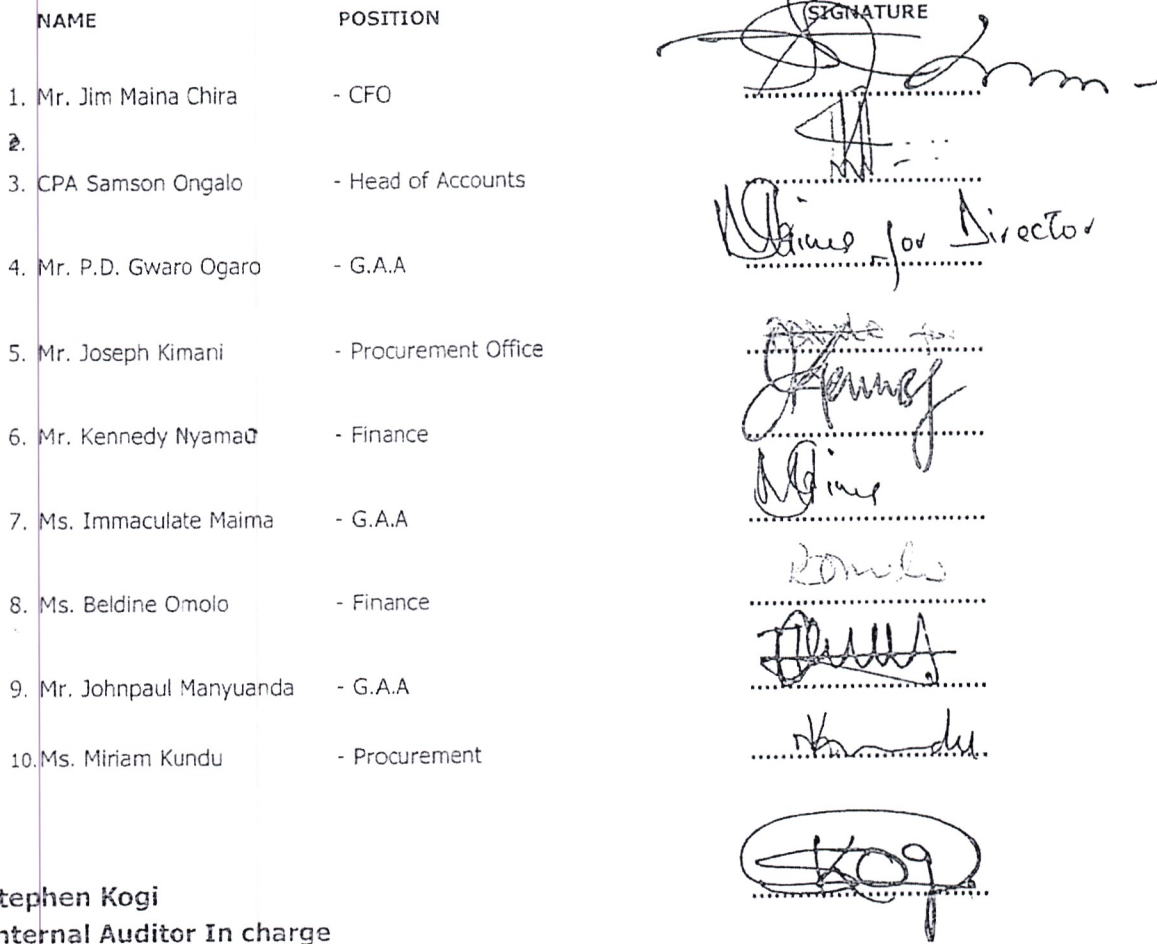 NAME POSITION SIGNATURE
1. Mr. Jim Maina Chira - CFO
2.
3. CPA Samson Ongalo - Head of Accounts
for Director
4. Mr. P.D. Gwaro Ogaro - G.A.A
5. Mr. Joseph Kimani - Procurement Office
6. Mr. Kennedy Nyamao - Finance
7. Ms. Immaculate Maima - G.A.A
8. Ms. Beldine Omolo - Finance
9. Mr. Johnpaul Manyuanda - G.A.A
10. Ms. Miriam Kundu - Procurement
tephen Kogi
nternal Auditor In charge